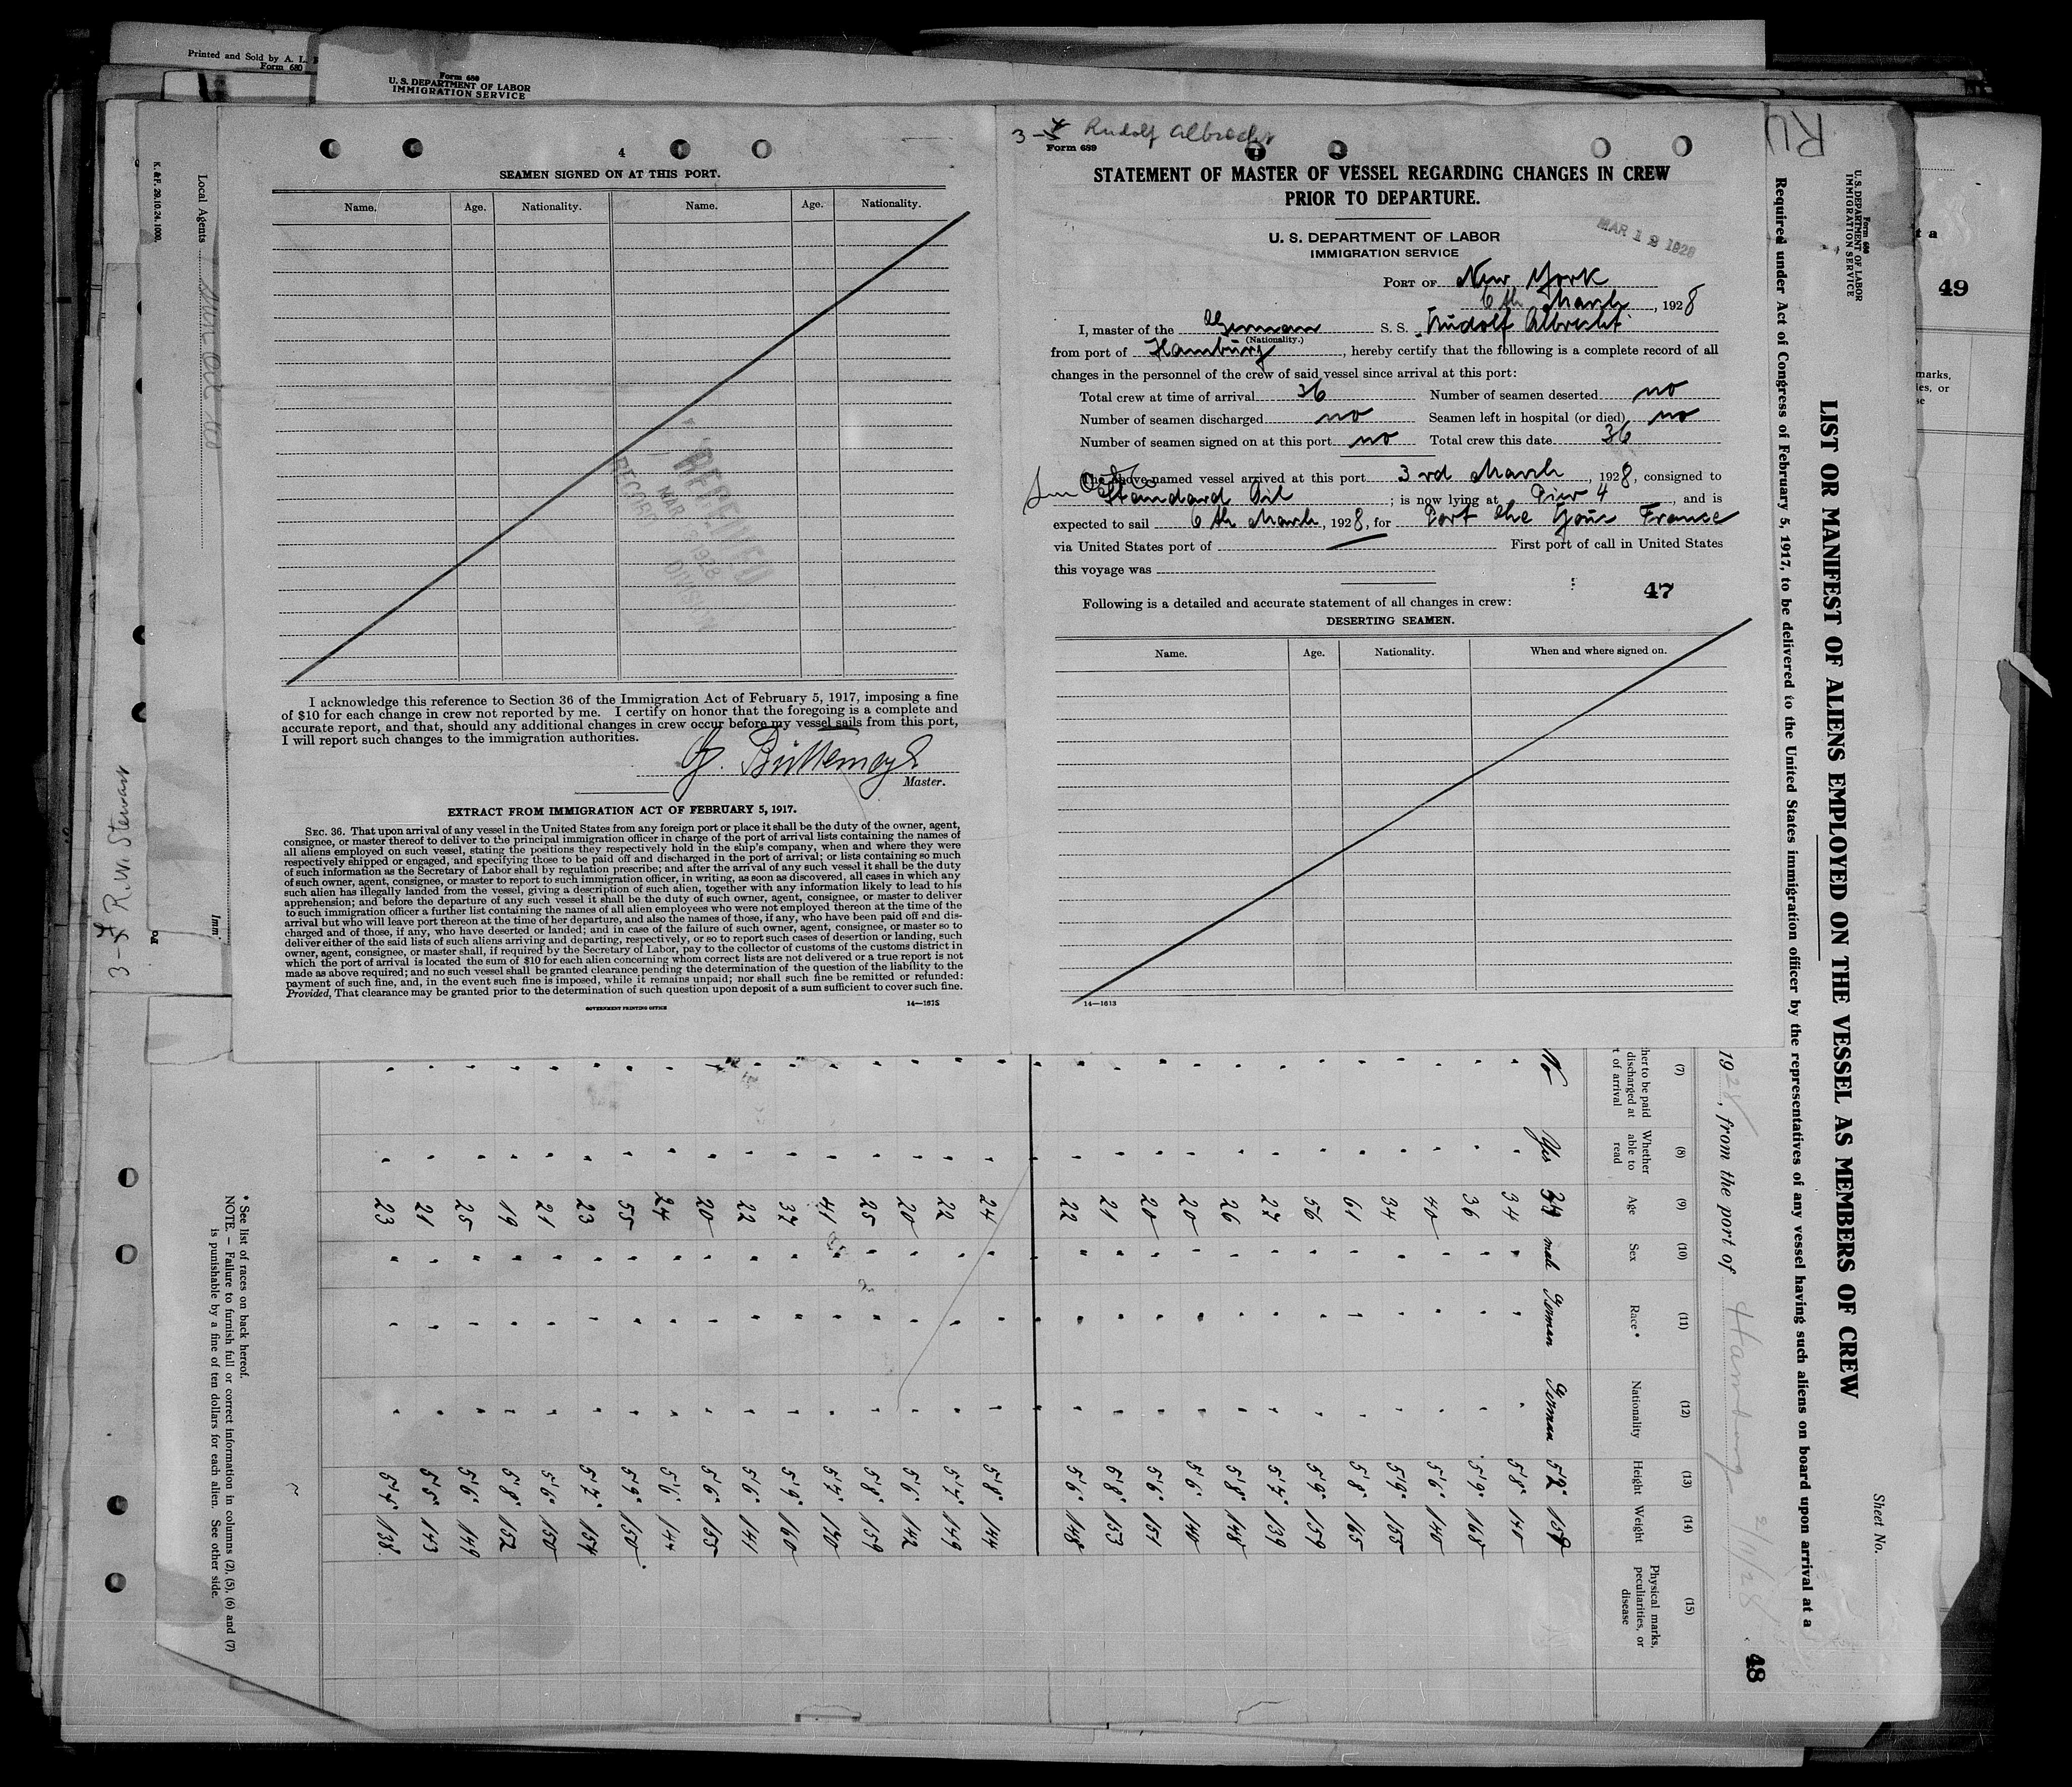 Printed and Sold by A. L.
Form 680
Form 680
U. S. DEPARTMENT OF LABOR
IMMIGRATION SERVICE
K. & F. 29.10.24. 1000.
Local Agents
Imm'
3- R.W. Stewart
4
SEAMEN SIGNED ON AT THIS PORT.
Name. Age. Nationality. Name. Age. Nationality.
RECEIVED
MAR 1928
RECORD DIVISION
I acknowledge this reference to Section 36 of the Immigration Act of February 5, 1917, imposing a fine
of $10 for each change in crew not reported by me. I certify on honor that the foregoing is a complete and
accurate report, and that, should any additional changes in crew occur before my vessel sails from this port,
I will report such changes to the immigration authorities.
Master.
EXTRACT FROM IMMIGRATION ACT OF FEBRUARY 5, 1917.
SEC. 36. That upon arrival of any vessel in the United States from any foreign port or place it shall be the duty of the owner, agent,
consignee, or master thereof to deliver to the principal immigration officer in charge of the port of arrival lists containing the names of
all aliens employed on such vessel, stating the positions they respectively hold in the ship's company, when and where they were
respectively shipped or engaged, and specifying those to be paid off and discharged in the port of arrival; or lists containing so much
of such information as the Secretary of Labor shall by regulation prescribe; and after the arrival of any such vessel it shall be the duty
of such owner, agent, consignee, or master to report to such immigration officer, in writing, as soon as discovered, all cases in which any
such alien has illegally landed from the vessel, giving a description of such alien, together with any information likely to lead to his
apprehension; and before the departure of any such vessel it shall be the duty of such owner, agent, consignee, or master to deliver
to such immigration officer a further list containing the names of all alien employees who were not employed thereon at the time of the
arrival but who will leave port thereon at the time of her departure, and also the names of those, if any, who have been paid off and dis-
charged and of those, if any, who have deserted or landed; and in case of the failure of such owner, agent, consignee, or master so to
deliver either of the said lists of such aliens arriving and departing, respectively, or so to report such cases of desertion or landing, such
owner, agent, consignee, or master shall, if required by the Secretary of Labor, pay to the collector of customs of the customs district in
which the port of arrival is located the sum of $10 for each alien concerning whom correct lists are not delivered or a true report is not
made as above required; and no such vessel shall be granted clearance pending the determination of the question of the liability to the
payment of such fine, and, in the event such fine is imposed, while it remains unpaid; nor shall such fine be remitted or refunded:
Provided, That clearance may be granted prior to the determination of such question upon deposit of a sum sufficient to cover such fine.
GOVERNMENT PRINTING OFFICE 14—1675
3- Rudolf Albrecht
Form 689
STATEMENT OF MASTER OF VESSEL REGARDING CHANGES IN CREW
PRIOR TO DEPARTURE.
U. S. DEPARTMENT OF LABOR
IMMIGRATION SERVICE
MAR 1 1928
PORT OF New York
6th March, 1928
I, master of the German S. S. Rudolf Albrecht
(Nationality.)
from port of Hamburg, hereby certify that the following is a complete record of all
changes in the personnel of the crew of said vessel since arrival at this port:
Total crew at time of arrival 36 Number of seamen deserted no
Number of seamen discharged no Seamen left in hospital (or died) no
Number of seamen signed on at this port no Total crew this date 36
The above-named vessel arrived at this port 3rd March, 1928, consigned to
Standard Oil; is now lying at Pier 4, and is
expected to sail 6th March, 1928, for Port France
via United States port of — First port of call in United States
this voyage was
47
Following is a detailed and accurate statement of all changes in crew:
DESERTING SEAMEN.
Name. Age. Nationality. When and where signed on.
14—1613
Form 680
U. S. DEPARTMENT OF LABOR
IMMIGRATION SERVICE
Sheet No.
LIST OR MANIFEST OF ALIENS EMPLOYED ON THE VESSEL AS MEMBERS OF CREW
Required under Act of Congress of February 5, 1917, to be delivered to the United States immigration officer by the representatives of any vessel having such aliens on board upon arrival at a
1928, from the port of Hamburg 2/11/28
48
49
(7) (8) (9) (10) (11) (12) (13) (14) (15)
her to be paid discharged at t of arrival Whether able to read Age Sex Race* Nationality Height Weight Physical marks, peculiarities, or disease
No Yes male German German
34 5'8" 140
36 5'9" 168
40 5'6" 140
34 5'9" 155
61 5'8" 165
56 5'9" 159
27 5'4" 139
26 5'8" 148
20 5'6" 140
20 5'6" 151
21 5'8" 153
22 5'6" 148
24 5'8" 144
22 5'4" 149
20 5'6" 142
25 5'8" 159
41 5'4" 170
37 5'9" 160
22 5'6" 141
20 5'6" 155
24 5'6" 144
55 5'9" 150
23 5'7" 154
21 5'6" 150
19 5'8" 152
25 5'6" 149
21 5'5" 143
23 5'4" 138
* See list of races on back hereof.
NOTE.— Failure to furnish full or correct information in columns (2), (5), (6) and (7)
is punishable by a fine of ten dollars for each alien. See other side.